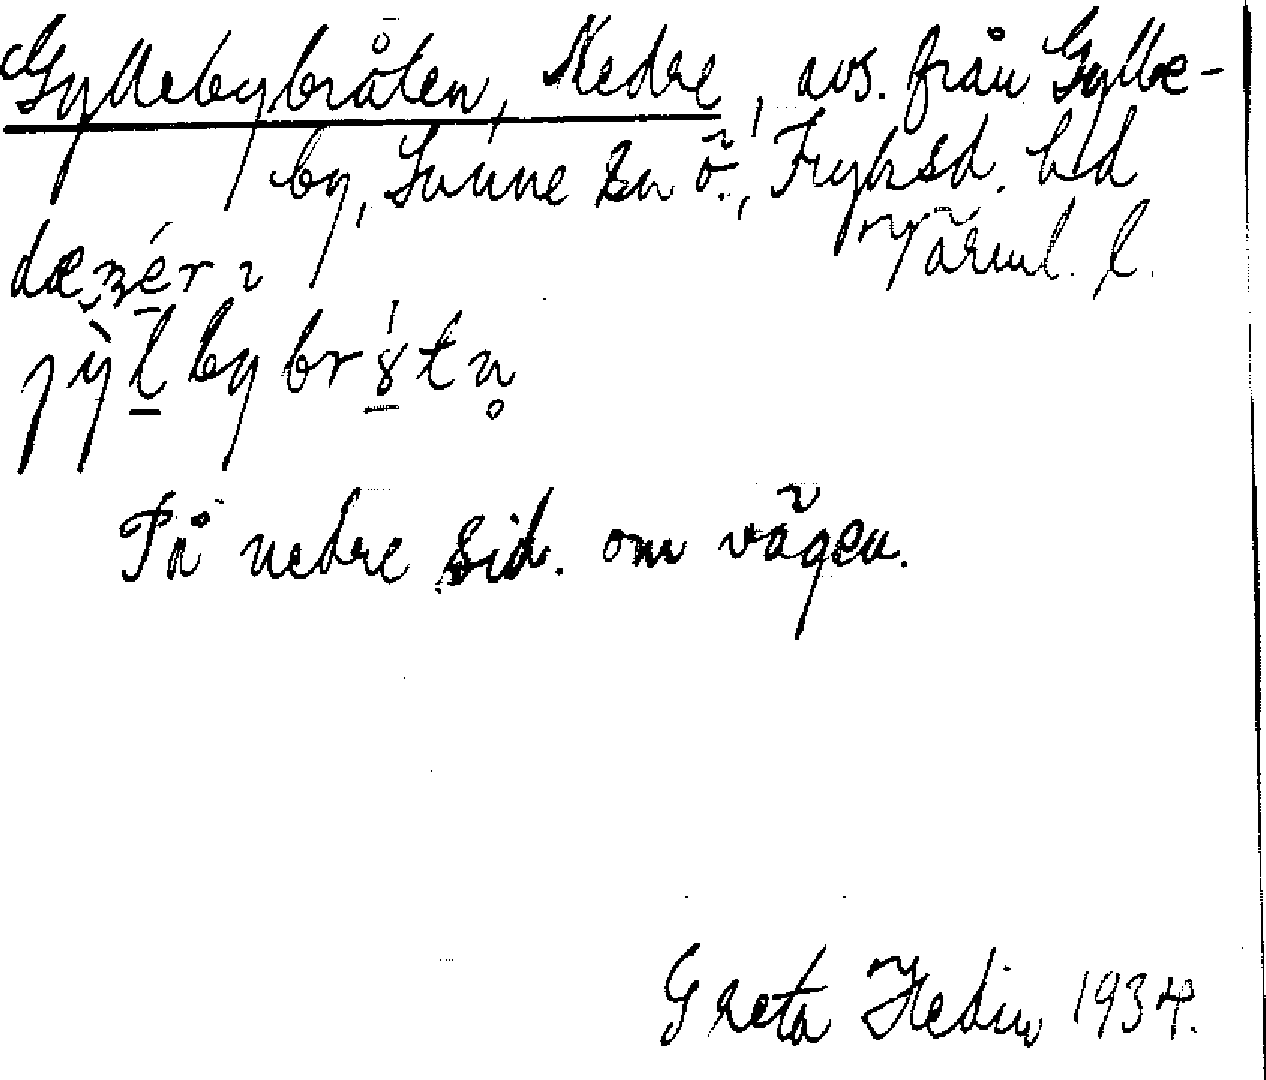 Gyllebybråten, Nedre, avs. från Gylle-
by, Sunne sn ö., Fryksd. hd
Värml. l.
jỳl by br tn̥
På nedre sid. om vägen.
Greta Hedin 1934.